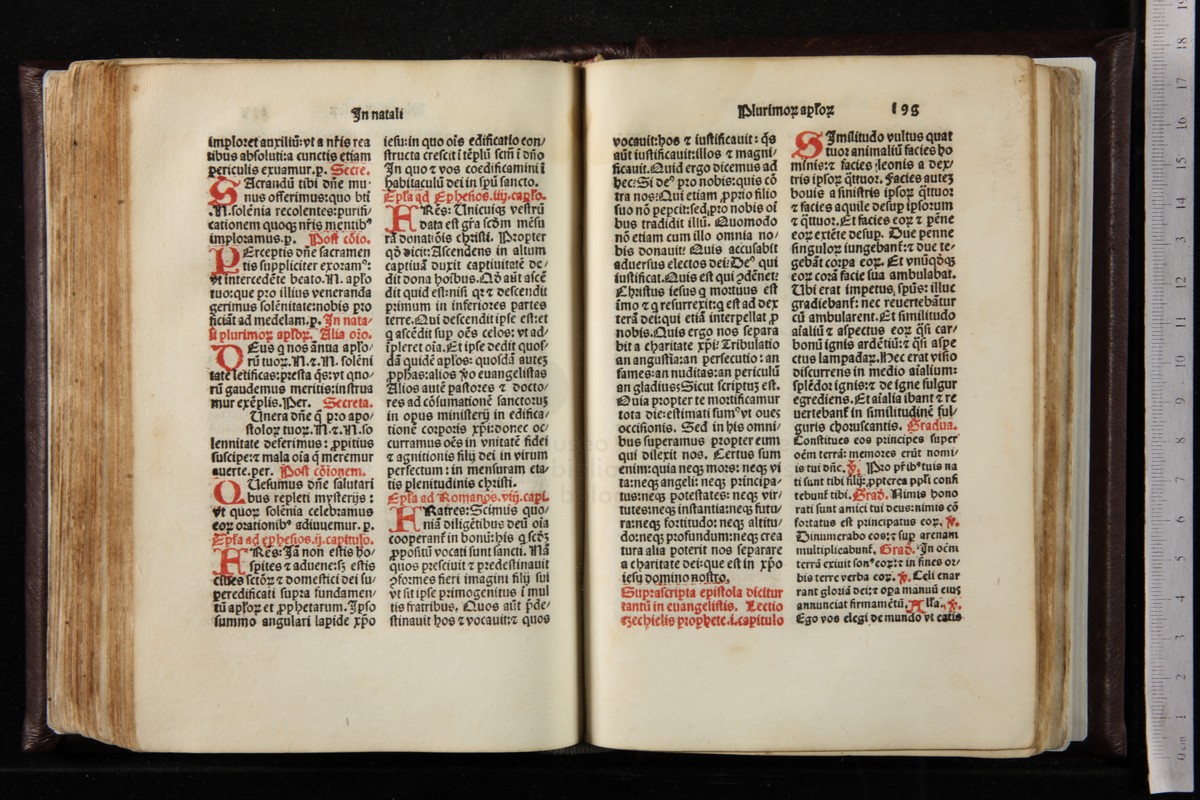 In natali
imploret auxiliū: vt a nr̄is rea
tibus absoluti: a cunctis etiam
periculis exuamur. p. Secre.
SAcrandū tibi dn̄e mu-
nus offerimus: quo bt̄i
.N. solēnia recolentes: purifi-
cationem quoqꝫ nr̄is mentibꝰ
imploramus. p. Post cōio.
PErceptis dn̄e sacramen
tis suppliciter exoramꝰ:
vt intercedēte beato .N. apl'o
tuo: que pro illius veneranda
gerimus solēnitate: nobis pro
ficiāt ad medelam. p. In nata-
li plurimorꝝ apl'orꝝ. Alia oro.
DEus q̄ nos ānua apl'o-
rū tuorꝝ .N. ⁊ .N. solēni
tate letificas: p̄sta q̄s: vt quo-
rū gaudemus meritis: instrua
mur exēplis. Per. Secreta.
Unera dn̄e q̄ pro apo-
stolorꝝ tuorꝝ .N. ⁊ .N. so
lennitate deferimus: ꝓpitius
suscipe: ⁊ mala oīa q̄ meremur
auerte. per. Post cōionem.
QUesumus dn̄e salutari
bus repleti mysterijs:
vt quorꝝ solēnia celebramus
eorꝝ orationibꝰ adiuuemur. p.
Epl'a ad ephesios .ij. capitulo.
FRēs: Iā non estis ho-
spites ⁊ aduene: sꝫ estis
ciues sctōrꝝ ⁊ domestici dei su-
peredificati supra fundamen-
tū apl'orꝝ et ꝓphetarum. Ipso
summo angulari lapide xp̄o
iesu: in quo oīs edificatio con-
structa crescit ī tēplū scm̄ ī dn̄o
In quo ⁊ vos coedificamini ī
habitaculū dei in spū sancto.
Epl'a ad Ephesios .iiij. capl'o.
FRēs: Unicuiqꝫ vestrū
data est gr̄a scd̄m mēsu
rā donatiōis christi. Propter
qd̄ dicit: Ascendens in altum
captiuā duxit captiuitatē: de-
dit dona hoībus. Qd̄ aūt ascē
dit quid est: nisi qr ⁊ descendit
primum in inferiores partes
terre. Qui descendit ipse est: et
q̄ ascēdit sup oēs celos: vt ad-
īpleret oīa. Et ipse dedit quos-
dā quidē apl'os: quosdā autē
ꝓphas: alios v̄o euangelistas
Alios autē pastores ⁊ docto-
res ad cōsumationē sanctorūꝫ
in opus ministerij in edifica-
tionē corporis xp̄i: donec oc-
curramus oēs in vnitatē fidei
⁊ agnitionis filij dei in virum
perfectum: in mensuram eta-
tis plenitudinis christi.
Epl'a ad Romanos .viij. capi.
FRatres: Scimus quo-
niā diligētibus deū oīa
cooperant̄ in bonū: his q̄ scd̄ꝫ
ꝓpositū vocati sunt sancti. Nā
quos presciuit ⁊ predestinauit
ꝯformes fieri imagini filij sui
vt sit ipse primogenitus ī mul
tis fratribus. Quos aūt p̄de-
stinauit hos ⁊ vocauit: ⁊ quos
Plurimorꝝ apl'orꝝ 198
vocauit: hos ⁊ iustificauit: q̄s
aūt iustificauit: illos ⁊ magni-
ficauit. Quid ergo dicemus ad
hec: Si deꝰ pro nobis: quis cō
tra nos: Qui etiam ꝓprio filio
suo nō pepcit: sed pro nobis oī
bus tradidit illū. Quomodo
nō etiam cum illo omnia no-
bis donauit: Quis accusabit
aduersus electos dei: Deꝰ qui
iustificat. Quis est qui ꝯdēnet:
Christus iesus q̄ mortuus est
īmo ⁊ q̄ resurrexit: q̄ est ad dex
terā dei: qui etiā interpellat ꝓ
nobis. Quis ergo nos separa
bit a charitate xp̄i: Tribulatio
an angustia: an persecutio: an
fames: an nuditas: an periculū
an gladius: Sicut scriptuꝫ est.
Quia propter te mortificamur
tota die: estimati sumꝰ vt oues
occisionis. Sed in his omni-
bus superamus propter eum
qui dilexit nos. Certus sum
enim: quia neqꝫ mors: neqꝫ vi
ta: neqꝫ angeli: neqꝫ principa-
tus: neqꝫ potestates: neqꝫ vir-
tutes: neqꝫ instantia: neqꝫ futu
ra: neqꝫ fortitudo: neqꝫ altitu-
do: neqꝫ profundum: neqꝫ crea
tura alia poterit nos separare
a charitate dei: que est in xp̄o
iesu domino nostro.
Suprascripta epistola dicitur
tantū in euangelistis. Lectio
ezechielis prophete. i. capitulo
SImilitudo vultus quat
tuor animaliū facies ho
minis: ⁊ facies leonis a dex-
tris ipsorꝝ q̄ttuor. Facies autez
bouis a sinistris ipsorꝝ q̄ttuor
⁊ facies aquile desup ipsorum
⁊ q̄ttuor. Et facies eorꝝ ⁊ pēne
eorꝝ extēte desup. Due penne
singulorꝝ iungebant̄: ⁊ due te-
gebāt corpa eorꝝ. Et vnūqd̄qꝫ
eorꝝ corā facie sua ambulabat.
Ubi erat impetus spūs: illuc
gradiebant̄: nec reuertebātur
cū ambularent. Et similitudo
aīaliū ⁊ aspectus eorꝝ q̄si car-
bonū ignis ardētiū: ⁊ q̄si aspe
ctus lampadarꝝ. Hec erat visio
discurrens in medio aīalium:
splēdor ignis: ⁊ de igne fulgur
egrediens. Et aīalia ibant ⁊ re
uertebant̄ in similitudinē ful-
guris choruscantis. Gradua.
Constitues eos principes super
oēm terrā: memores erūt nomi-
is tui dn̄e. ℣. Pro pr̄ibꝰ tuis na
ti sunt tibi filij: ꝓpterea ppl'i confi
tebunt̄ tibi. Grad. Nimis hono
rati sunt amici tui deus: nimis cō
fortatus est principatus eorꝝ. ℣.
Dinumerabo eos: ⁊ sup arenam
multiplicabunt̄. Grad. In oēm
terrā exiuit sonꝰ eorꝝ: ⁊ in fines or-
bis terre verba eorꝝ. ℣. Celi enar
rant gloriā dei: ⁊ opa manuū eiuꝫ
annunciat firmamētū. Alla. ℣.
Ego vos elegi de mundo vt eatis